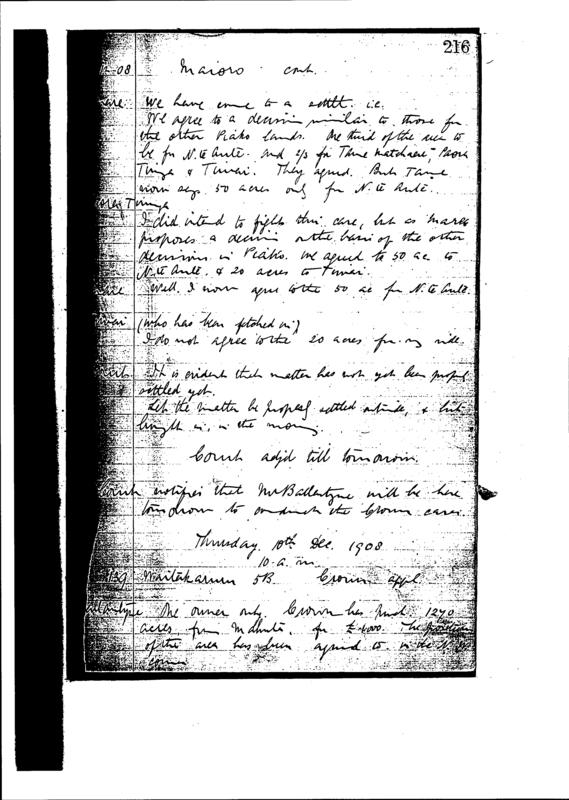 216
08 Maioro cont.
We have come to a settlt. i.e.
We agree to a decision similar to those for
the other Piako lands. One third of the area to
be for N. te Aute. and 2/3 for Tame
& Tiwai. They agreed. But Tame
now says 50 acres only for N. te Aute.
I did intend to fight this case, but as
proposes a decision on the basis of the other
decisions in Piako. We agreed to 50 ac to
N. te Aute. & 20 acres to Tiwai.
Well I now agree to the 50 ac for N. te Aute.
(who has been fetched in)
I do not agree to the 20 acres for my side.
It is evident that matter has not yet been properly
settled yet.
Let the matter be properly settled outside, & list
brought in, in the morning.
Court adjd till tomorrow.
Court notifies that Mr Ballantyne will be here
tomorrow to conduct the Crown cases.
Thursday 10th Dec. 1908
10 a.m.
Waitakaruru 5B. Crown appl.
One owner only. Crown has purch. 1270
acres from for £1000. The position
of the area has been agreed to in the